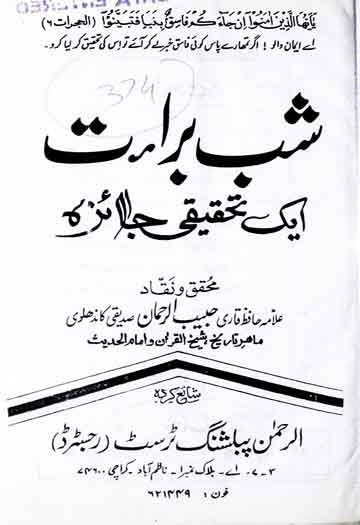 يٰٓاَيُّهَا الَّذِيْنَ اٰمَنُوْٓا اِنْ جَآءَكُمْ فَاسِقٌۢ بِنَبَاٍ فَتَبَيَّنُوْٓا (الحجرات ۶)
اے ایمان والو! اگر تمھارے پاس کوئی فاسق خبر لے کر آئے تو اس کی تحقیق کر لیا کرو۔
374
شب براءت
ایک تحقیقی جائزہ
محقق و نقاد
علامہ حافظ قاری حبیب الرحمان صدیقی کاندھلوی
ماہر تاریخ، شیخ القرآن و امام الحدیث
شائع کردہ
الرحمٰن پبلشنگ ٹرسٹ (رجسٹرڈ)
۳-۷-اے- بلاک نمبر۱- ناظم آباد- کراچی ۷۴۶۰۰
فون: ۶۲۱۴۴۹